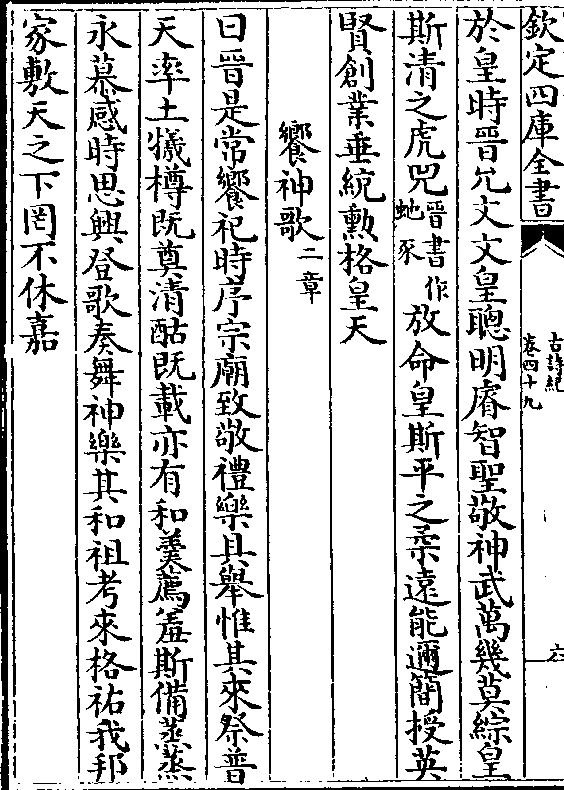 欽定四庫全書
古詩紀
卷四十九
六
於皇時晉允文文皇聰明睿智聖敬神武萬幾莫綜皇
斯清之虎兕晉書作虵豕放命皇斯平之柔遠能邇簡授英
賢創業垂統勲格皇天
饗神歌二章
曰晉是常饗祀時序宗廟致敬禮樂具舉惟其來祭普
天率土犠樽既奠清酤既載亦有和羹薦羞斯備蒸蒸
永慕感時思興登歌奏舞神樂其和祖考來格祐我邦
家敷天之下罔不休嘉